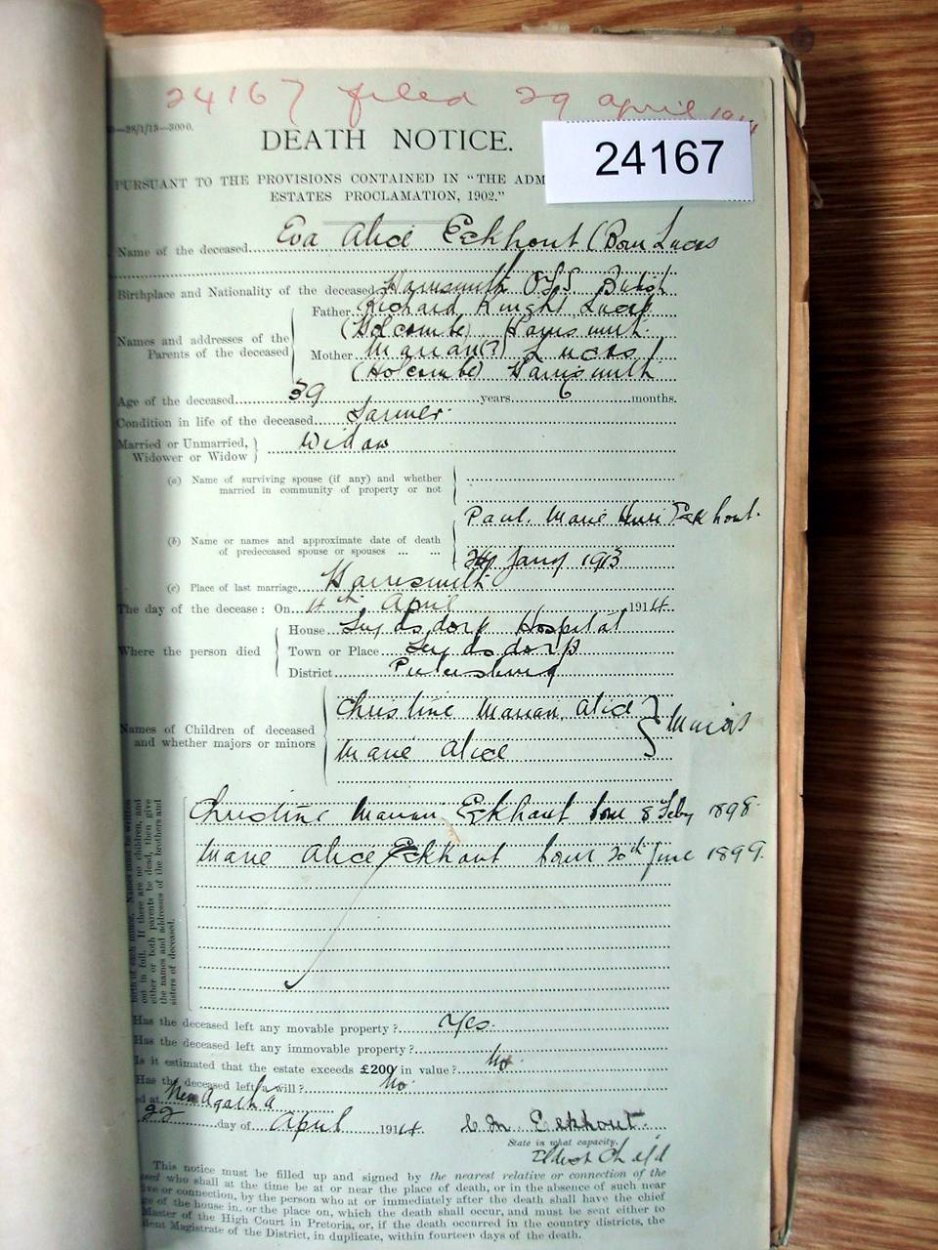 24167 filed 29 april 1914
—28/1/13—3000.
DEATH NOTICE.
24167
PURSUANT TO THE PROVISIONS CONTAINED IN "THE ADM
ESTATES PROCLAMATION, 1902."
Name of the deceased Eva Alice Eckhout (Born Lucas
Birthplace and Nationality of the deceased Harrismith OFS British
Names and addresses of the Parents of the deceased
Father Richard Knight Lucas
(Holcombe) Harrismith
Mother Marian(?) Lucas
(Holcombe) Harrismith
Age of the deceased 39 years 6 months.
Condition in life of the deceased Farmer
Married or Unmarried, Widower or Widow Widow
(a) Name of surviving spouse (if any) and whether
married in community of property or not
Paul Marie Henri Eekhout.
(b) Name or names and approximate date of death
of predeceased spouse or spouses ... ... Jany 1913
(c) Place of last marriage Harrismith
The day of the decease: On 4th April 1914.
Where the person died
House Leydsdorp Hospital
Town or Place Leydsdorp
District Pietersburg
Names of Children of deceased
and whether majors or minors
Christine Marian Alice } Minors
Marie Alice
Christine Marian Eekhout born 8 Feby 1898
Marie Alice Eekhout born 20th June 1899.
birth of each minor. Names must be written
out in full. If there are no children, and
either or both parents be dead, then give
the names and addresses of the brothers and
sisters of deceased.
Has the deceased left any movable property? Yes.
Has the deceased left any immovable property?
Is it estimated that the estate exceeds £200 in value? No
Has the deceased left a will? No.
ed at New Agatha
22 day of April 1914. C M Eekhout.
State in what capacity.
Eldest Child
This notice must be filled up and signed by the nearest relative or connection of the
sed who shall at the time be at or near the place of death, or in the absence of such near
ive or connection, by the person who at or immediately after the death shall have the chief
ge of the house in, or the place on, which the death shall occur, and must be sent either to
Master of the High Court in Pretoria, or, if the death occurred in the country districts, the
dent Magistrate of the District, in duplicate, within fourteen days of the death.